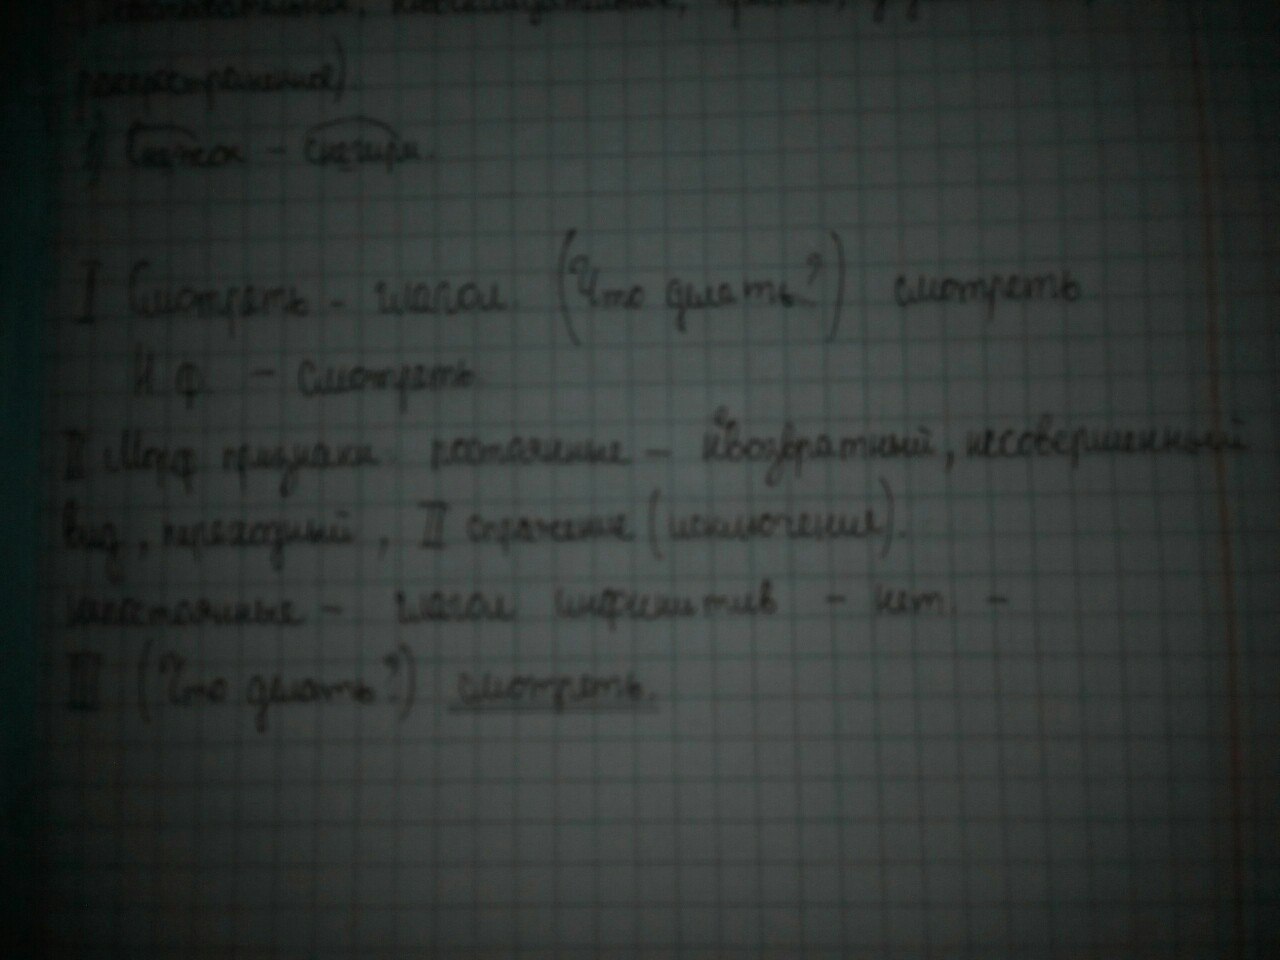 распространённое).
Снежок – снегири.
I Смотреть – глагол (Что делать?) смотреть
Н.ф. – смотреть
II Морф признаки постоянные – невозвратный, несовершенный
вид, переходный, II спряжение (исключение).
непостоянные – глагол инфинитив – нет –
III (Что делать?) смотреть.